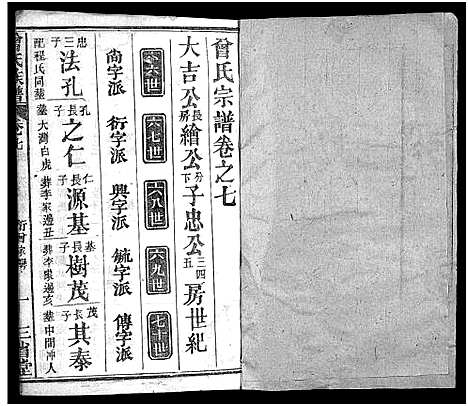 曾氏宗譜卷之七
大吉公長房繪公分下子忠公三四五房世紀
六六世 六七世 六八世 六九世 七十世
尚字派 衍字派 興字派 毓字派 傳字派
忠三子法孔 孔長子之仁 仁長子源基 基長子樹茂 茂長子其泰
配程氏同葬 葬大灣白虎 葬李家邊丑 葬李家邊亥 葬中間冲人
曾氏宗譜 卷七 一 三省堂